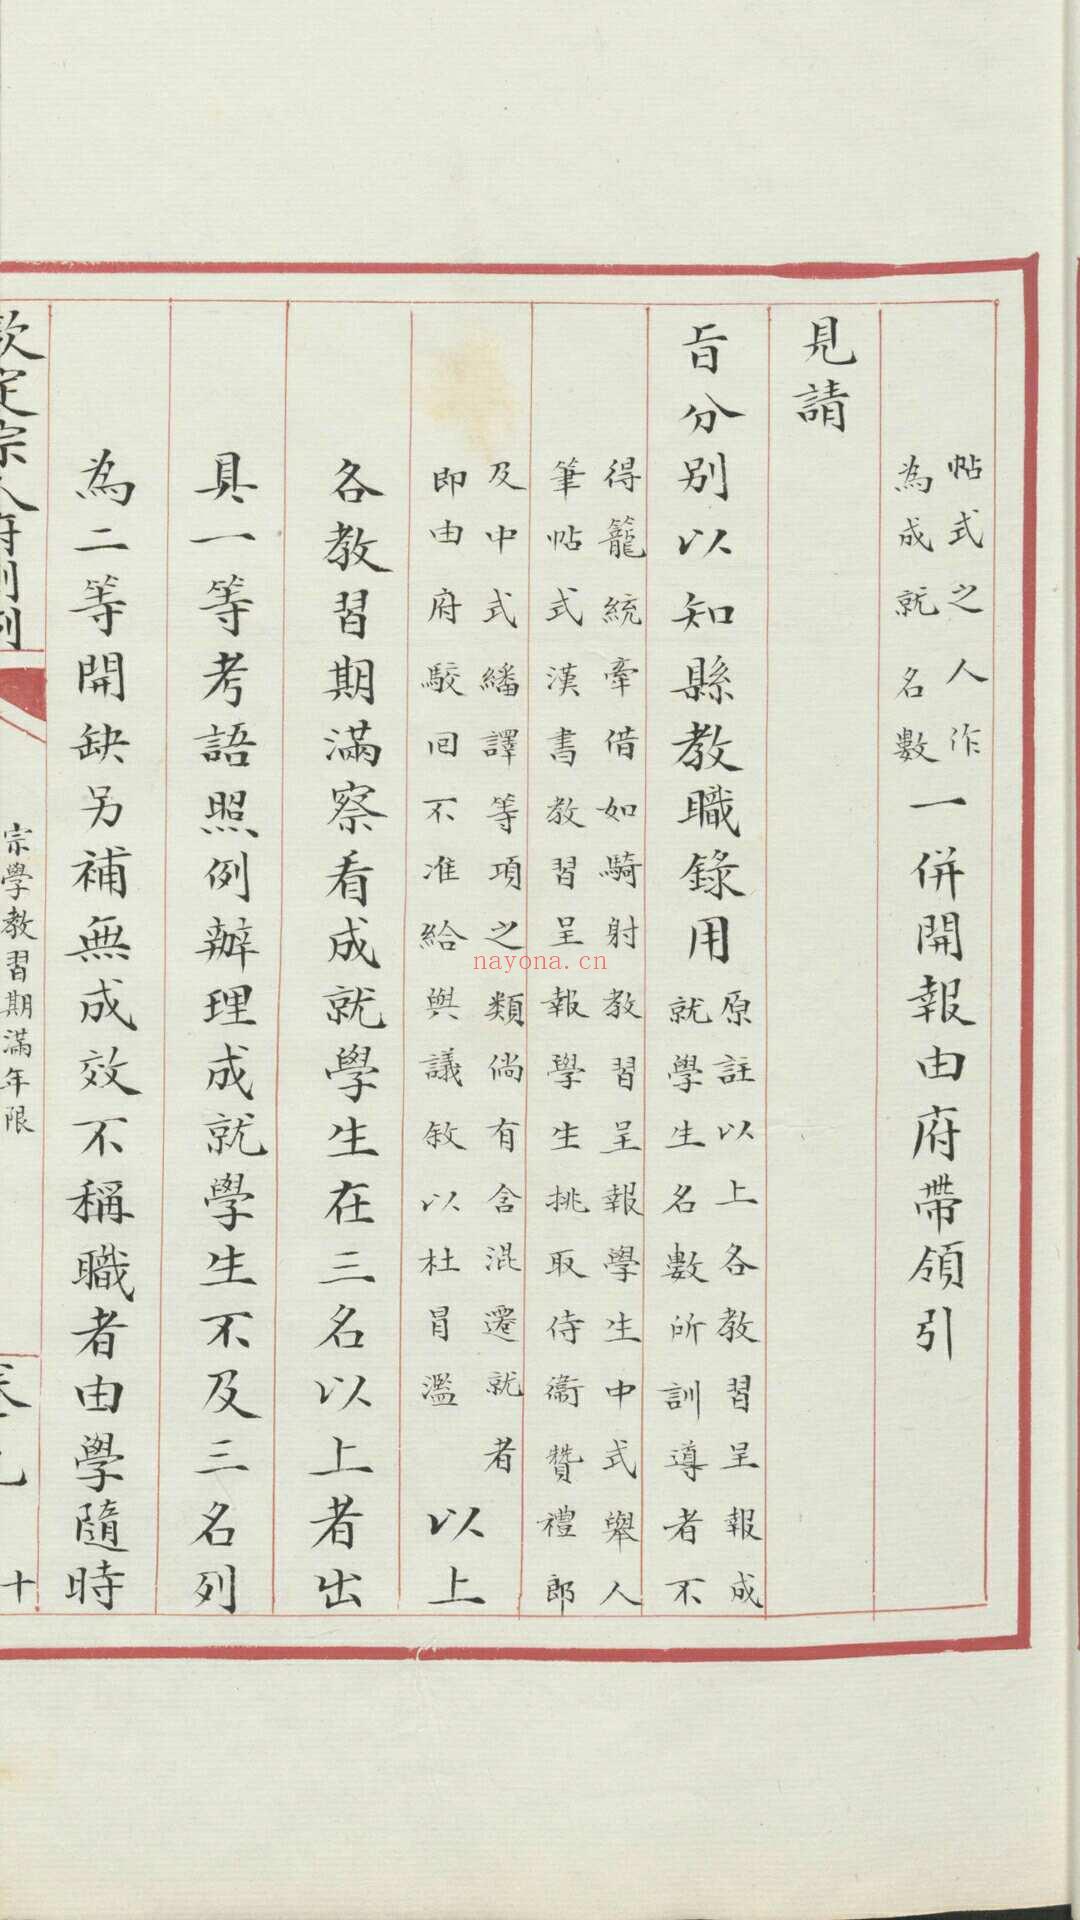 帖式之人作
為成就名數
一併開報由府帶領引
見請
旨分別以知縣教職錄用
原註以上各教習呈報成
就學生名數所訓導者不
得籠統牽借如騎射教習呈報學生中式舉人
筆帖式漢書教習呈報學生挑取侍衞贊禮郎
及中式繙譯等項之類倘有含混遷就者
即由府駮回不准給與議敘以杜冒濫
以上
各教習期滿察看成就學生在三名以上者出
具一等考語照例辦理成就學生不及三名列
為二等開缺另補無成效不稱職者由學隨時
欽定宗人府則例
宗學教習期滿年限
十
nayona.cn